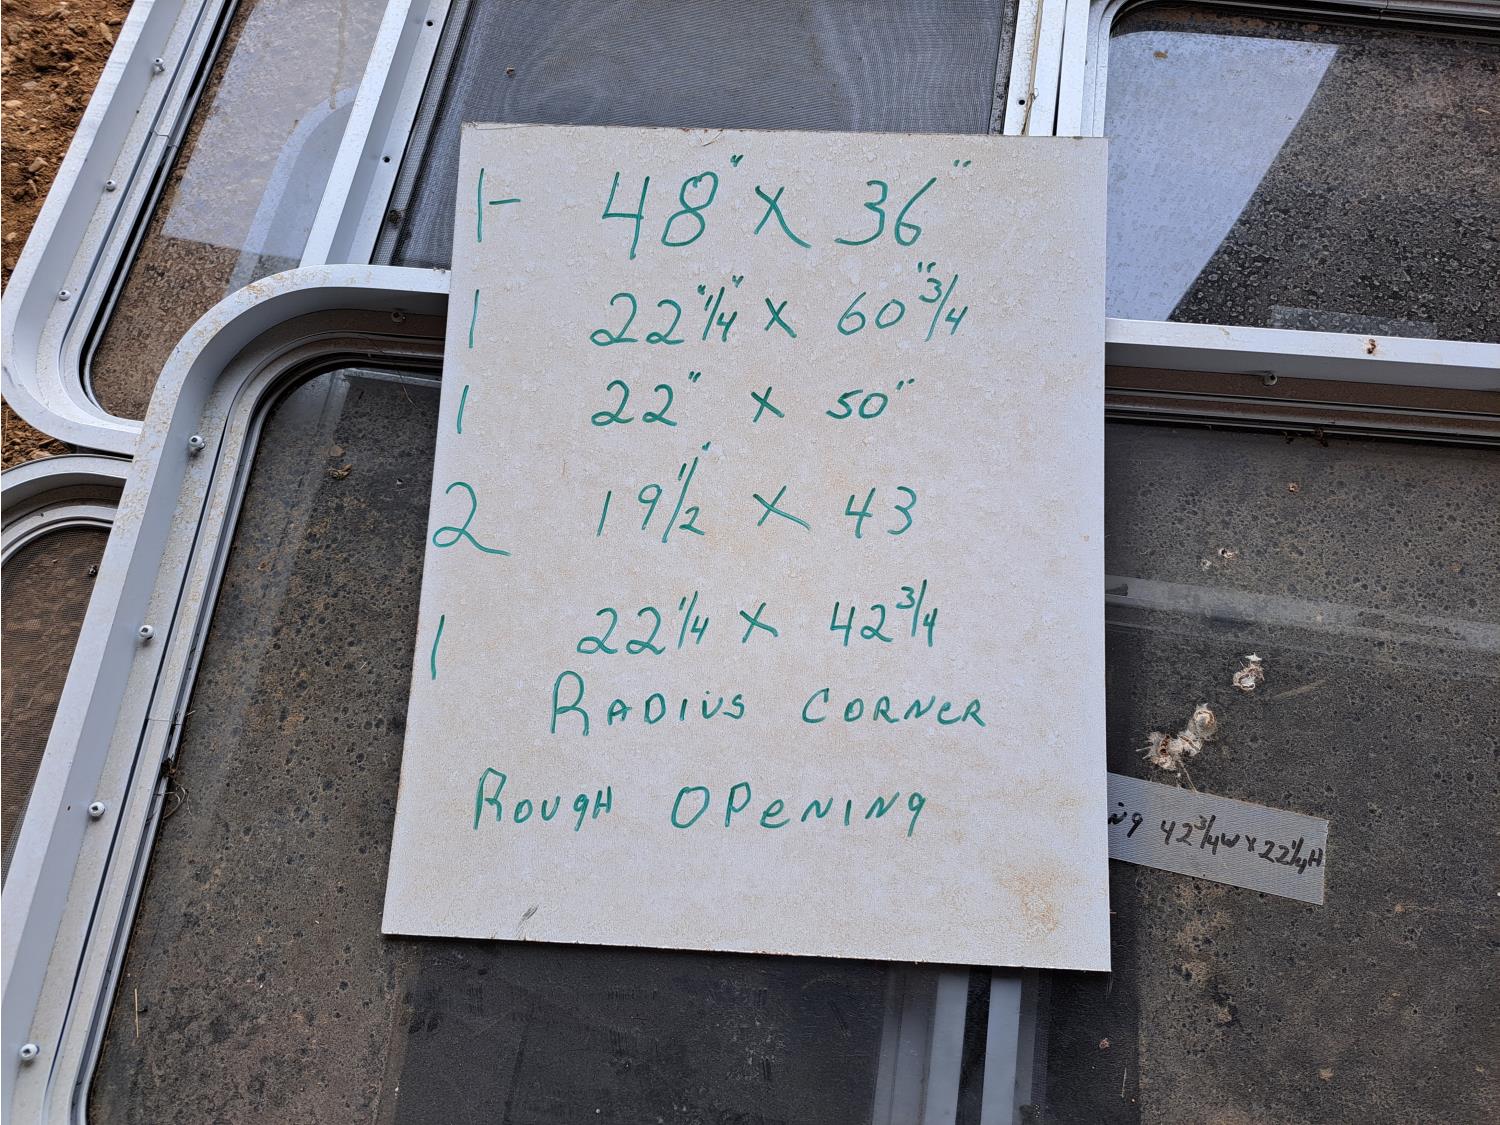 1- 48" X 36"
1 22"1/4" X 60"3/4
1 22" X 50"
2 19 1/2" X 43
1 22 1/4 X 42 3/4
RADIUS CORNER
ROUGH OPENING
42 3/4W X 22 1/4H